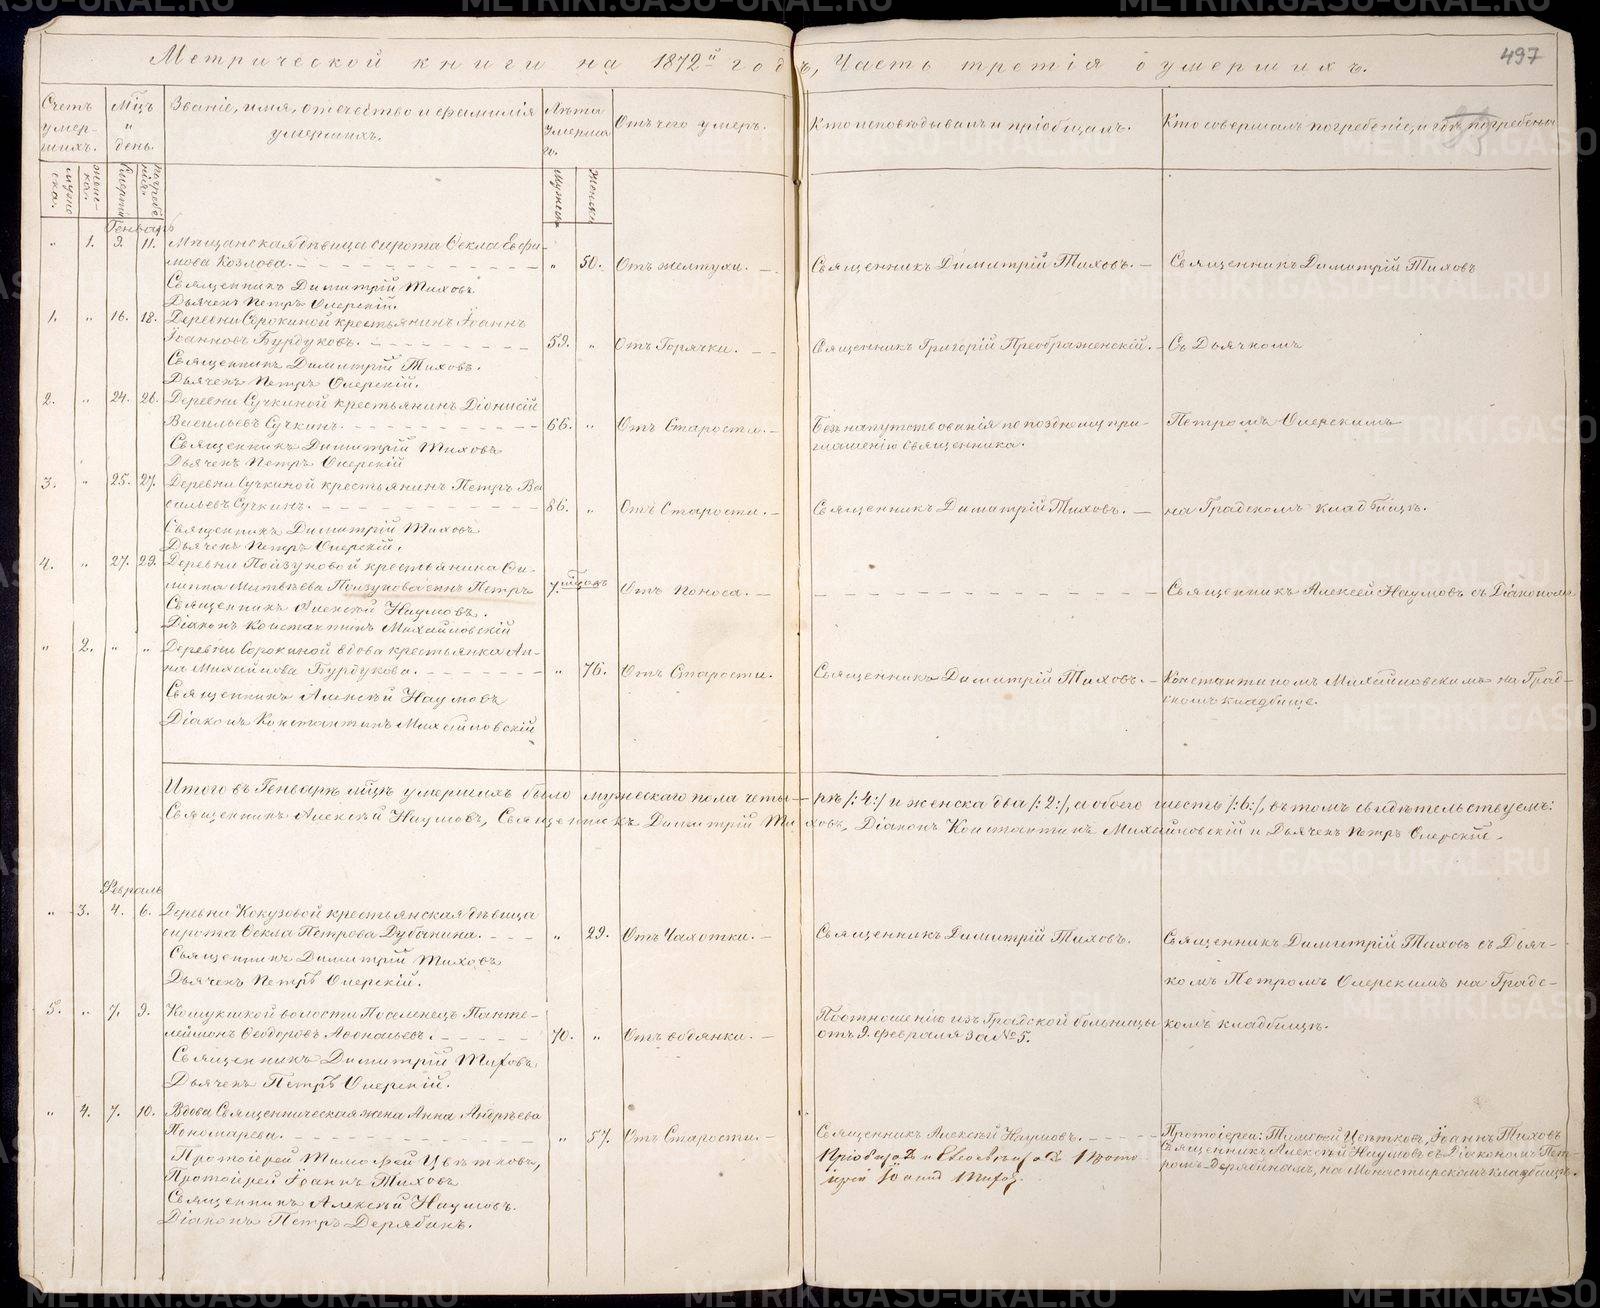 Метрической книги на 1872й годъ, Часть третія о умершихъ.
497
Счетъ умер-шихъ.
Мѣцъ и день.
Званіе, имя, отечество и фамилія умершихъ.
Лѣта умерша-го.
Отъ чего умеръ.
Кто исповѣдывалъ и пріобщалъ.
Кто совершалъ погребеніе, и гдѣ погребены
мужес-ка.
женс-ка.
смерти
погребе-нія.
мужеска
женска
Генварь
„ 1. 9. 11. Мѣщанская дѣвица сирота Ѳекла Евфи-
мова Козлова. „ 50. Отъ желтухи. Священникъ Димитрій Тиховъ. Священникъ Димитрій Тиховъ
Священникъ Димитрій Тиховъ
Дьячекъ Петръ Озерскій.
1. „ 16. 18. Деревни Сорокиной крестьянинъ Іоаннъ
Іоанновъ Бурдуковъ. 59. „ Отъ Горячки. Священникъ Григорій Преображенскій. Съ Дьячкомъ
Священникъ Димитрій Тиховъ.
Дьячекъ Петръ Озерскій.
2. „ 24. 26. Деревни Сучкиной крестьянинъ Діонисій
Васильевъ Сучкинъ. 66. „ Отъ Старости. Безъ напутствованія по позднему при- Петромъ Озерскимъ
глашенію Священника.
Священникъ Димитрій Тиховъ
Дьячекъ Петръ Озерскій
3. „ 25. 27. Деревни Сучкиной крестьянинъ Петръ Ва
сильевъ Сучкинъ. 86. „ Отъ Старости. Священникъ Димитрій Тиховъ. на Градскомъ кладбищѣ.
Священникъ Димитрій Тиховъ
Дьячекъ Петръ Озерскій.
4. „ 27. 29. Деревни Ползуновой крестьянина Фи-
липпа Матвѣева Ползунова сынъ Петръ 7. Отъ Поноса. Священникъ Алексѣй Наумовъ съ Діакономъ
Священникъ Алексѣй Наумовъ.
Діаконъ Константинъ Михайловскій
„ 2. „ „ Деревни Сорокиной вдова крестьянка Ан-
на Михайлова Бурдукова. „ 76. Отъ Старости. Священникъ Димитрій Тиховъ. Константиномъ Михайловскимъ на Град-
скомъ кладбище.
Священникъ Алексѣй Наумовъ
Діаконъ Константинъ Михайловскій
Итого въ Генварѣ мѣцѣ умершихъ было мужескаго пола четы-рѣ /:4:/ и женска два /:2:/, а обоего шесть /:6:/, въ томъ свидѣтельствуемъ:
Священникъ Алексѣй Наумовъ, Священникъ Димитрій Тиховъ, Діаконъ Константинъ Михайловскій и Дьячекъ Петръ Озерскій.
Февраль
„ 3. 4. 6. Деревни Кокузовой крестьянская дѣвица
сирота Ѳекла Петрова Дубанина. „ 29. Отъ Чахотки. Священникъ Димитрій Тиховъ. Священникъ Димитрій Тиховъ съ Дьяч-
Священникъ Димитрій Тиховъ
Дьячекъ Петръ Озерскій. комъ Петромъ Озерскимъ на Градс-
5. „ 7. 9. волости Поселенецъ Панте-
леймонъ Ѳеодоровъ Аѳонасьевъ. 70. „ Отъ водянки. По отношенію изъ Градской больницы комъ кладбищѣ.
отъ 9. февраля за № 5.
Священникъ Димитрій Тиховъ
Дьячекъ Петръ Озерскій.
„ 4. 7. 10. Вдова Священническая жена Анна Андреева
Пономарева. „ 57. Отъ Старости. Священникъ Алексѣй Наумовъ. Протоіереи: Тимоѳей Цвѣтковъ, Іоаннъ Тиховъ
Священникъ Алексѣй Наумовъ съ Діакономъ Пет-
ромъ Дерябинымъ, на Монастырскомъ кладбищѣ.
Прото
іерей Іоаннъ Тихов.
Протоіерей Тимоѳей Цвѣтковъ,
Протоіерей Іоаннъ Тиховъ
Священникъ Алексѣй Наумовъ.
Діаконъ Петръ Дерябинъ.
METRIKI.GASO-URAL.RU